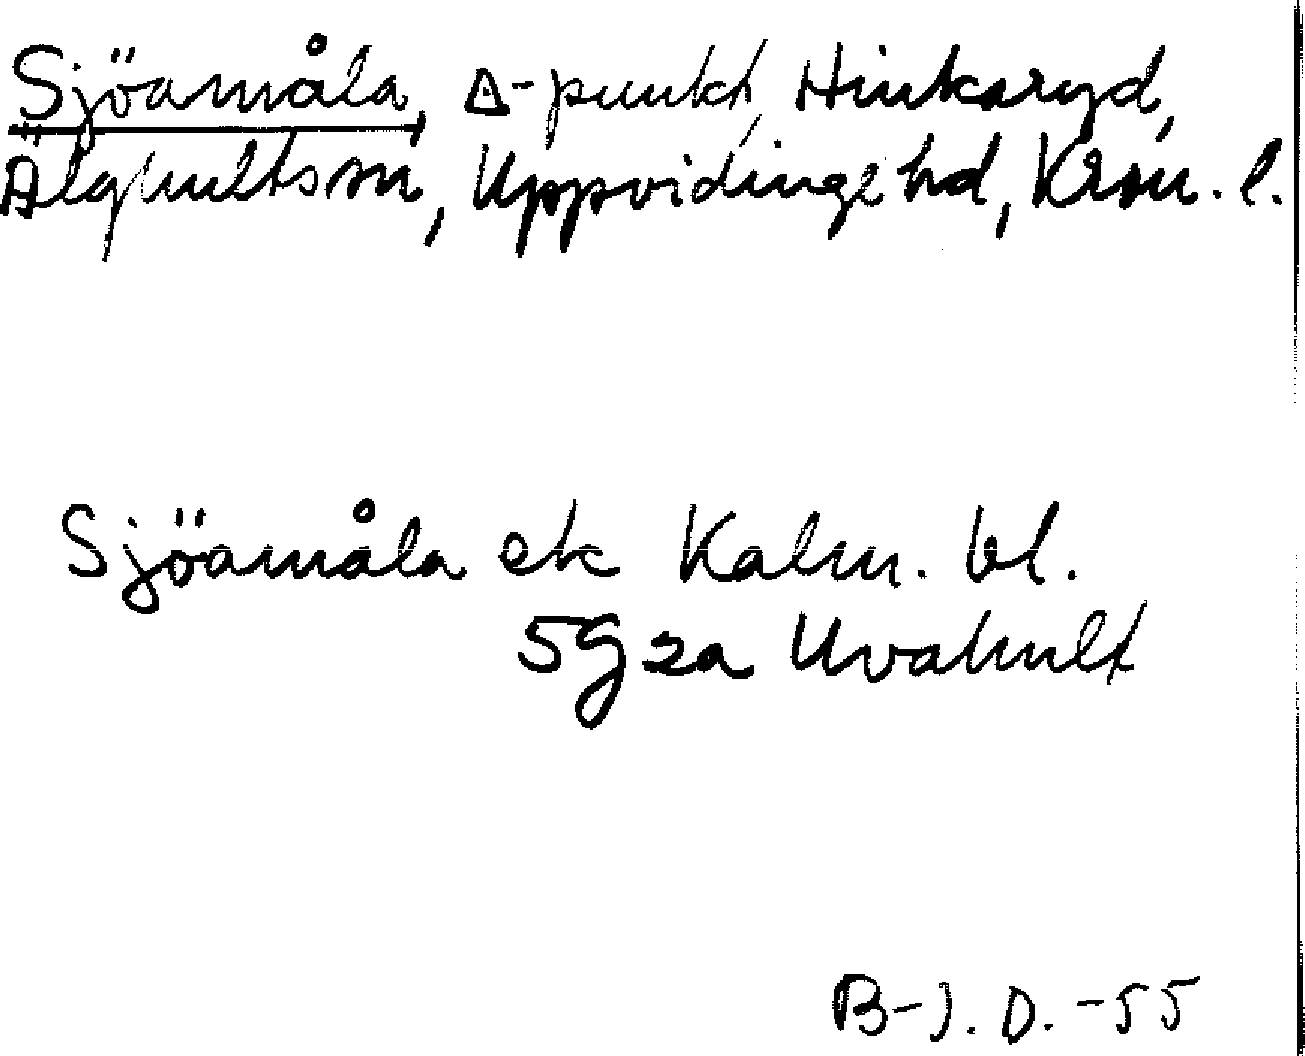 Sjöamåla, Δ-punkt, Hinkaryd,
Älghults sn, Uppvidinge hd, Kron. l.
Sjöamåla ek Kalm. bl.
5G2a Uvahult
B-J. D. -55